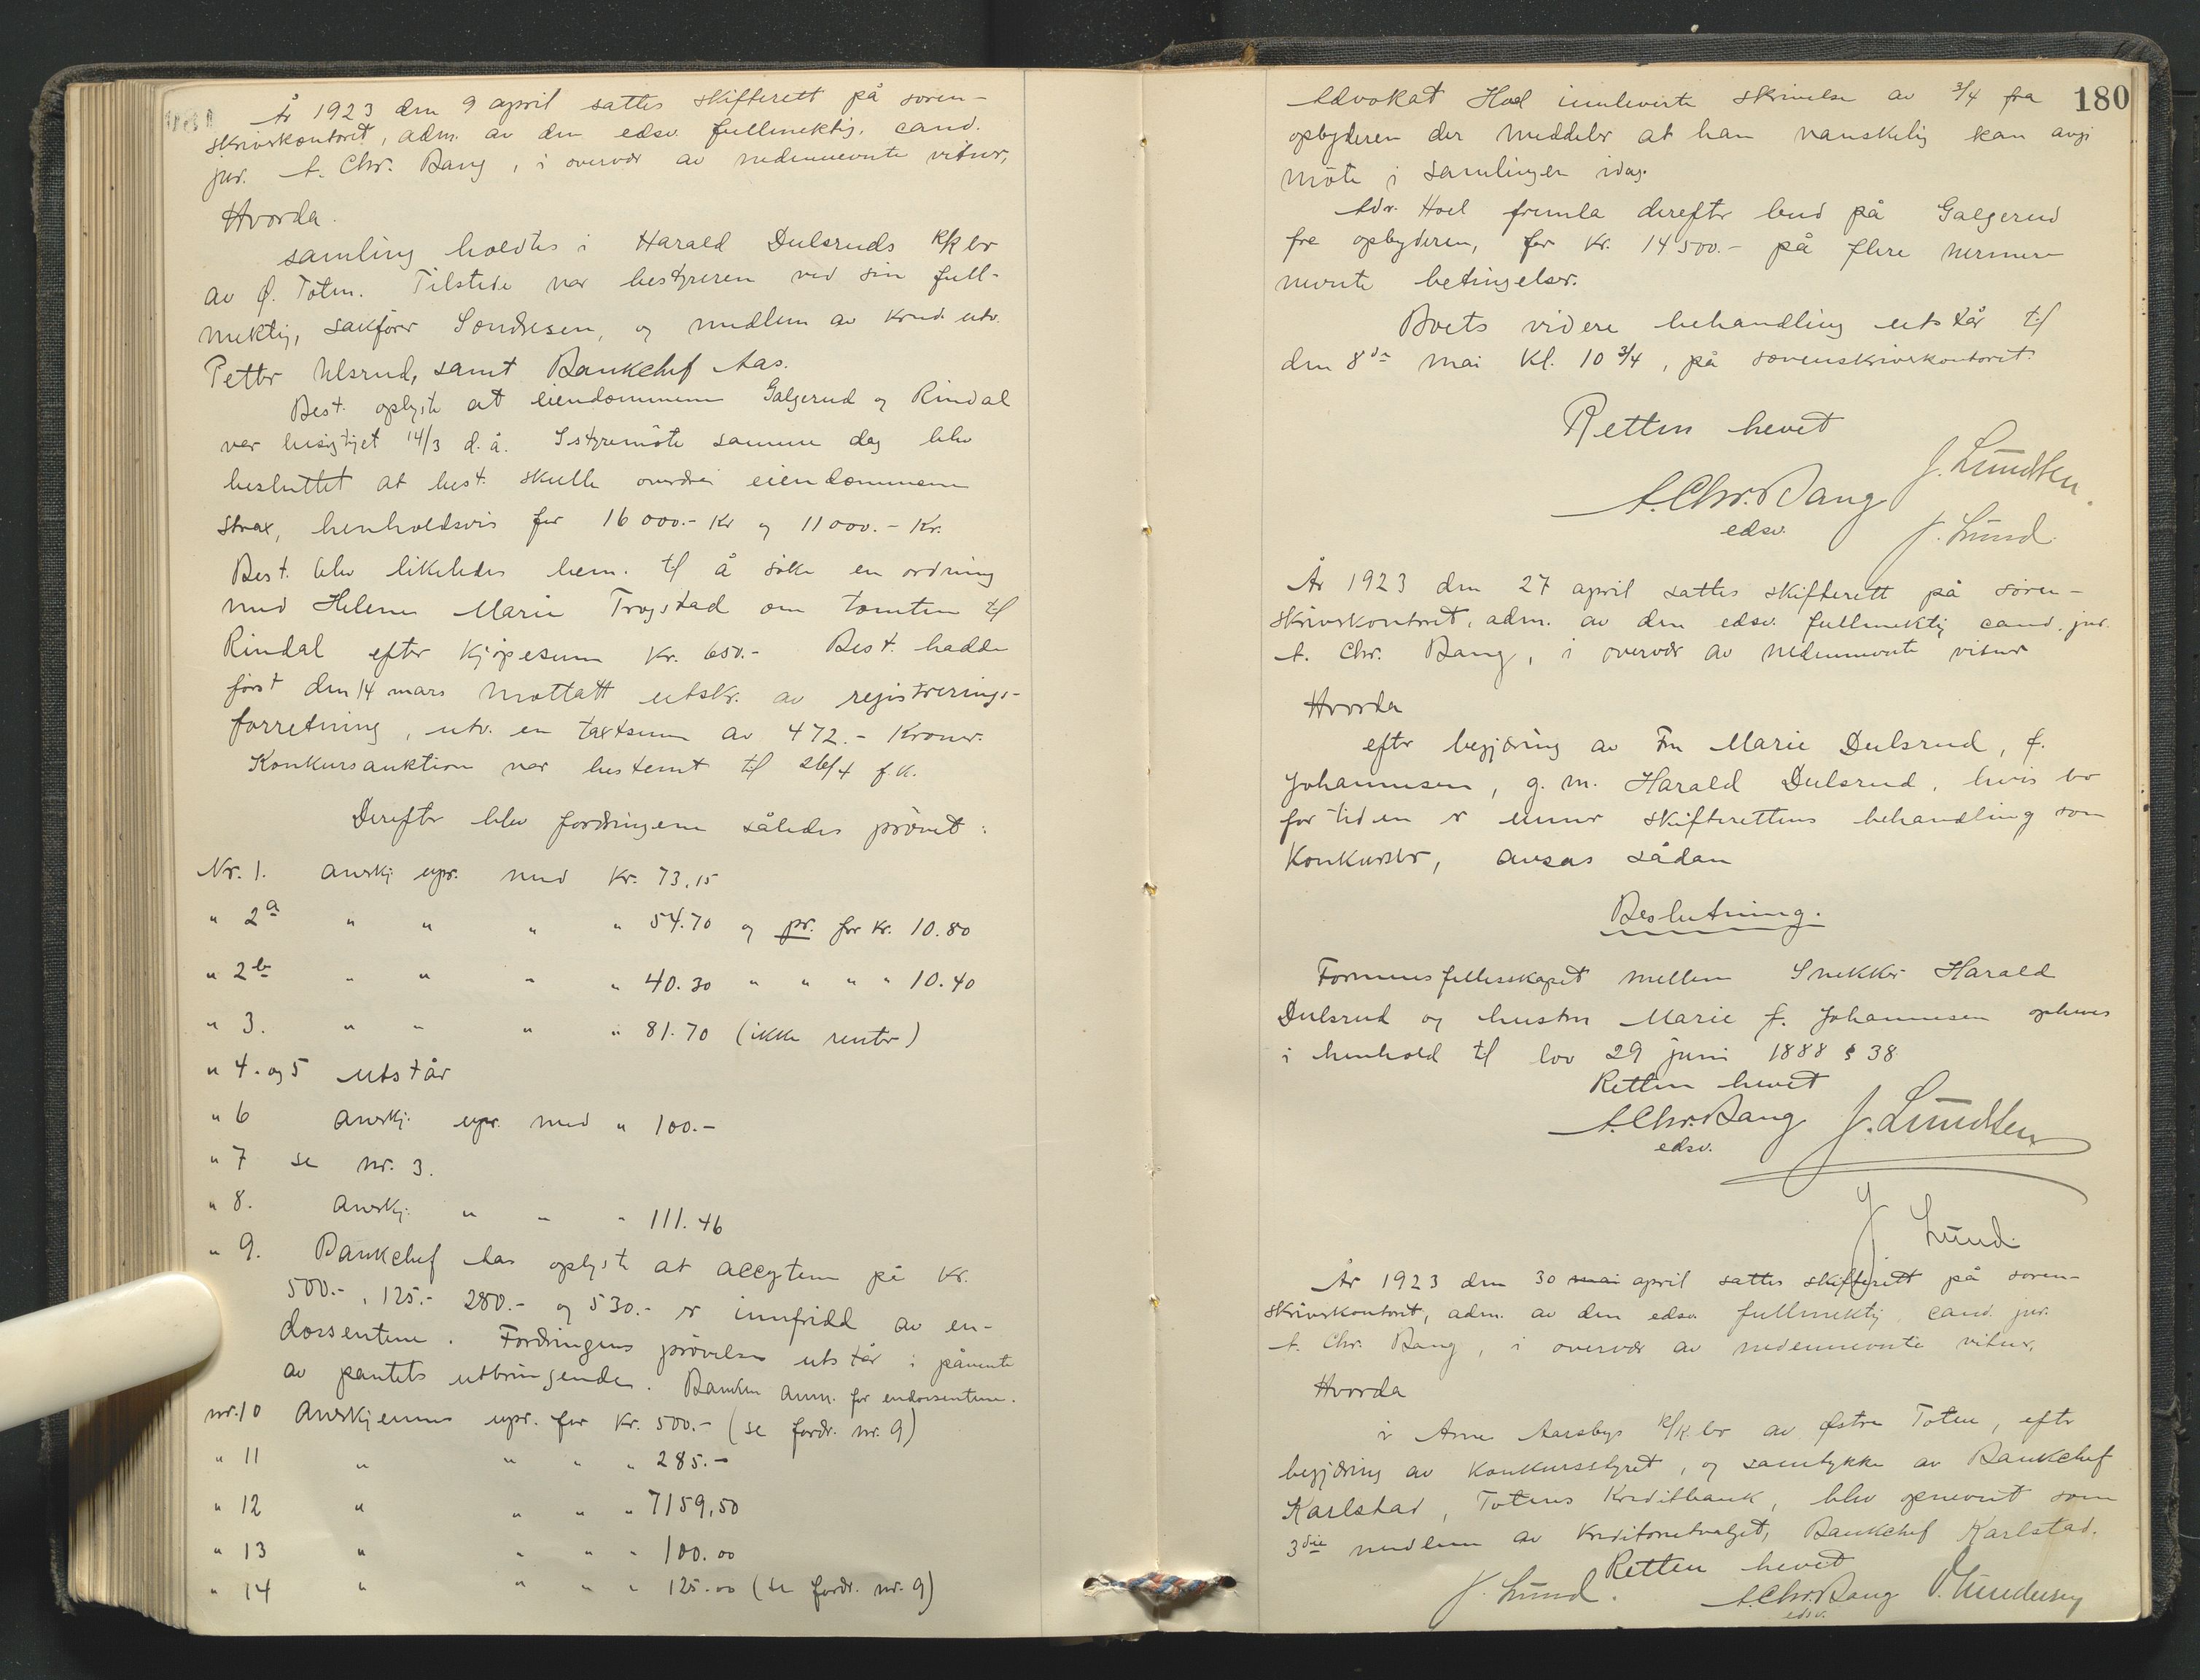 År 1923 den 9 april sattes skifterett på soren-
skriverkontoret, adm. av den edsv. fullmektig, cand.
jur. A. Chr. Bang, i overvær av nedennevnte vitner,
Hvorda
samling holdtes i Harald Dulsruds k/k bo
av Ø. Toten. Tilstede var bestyreren ved sin full-
mektig, sakfører Sondresen, og medlem av kred. utv.
Petter Ulsrud, samt Bankchef Aas.
Best. oplyste at eiendommene Galgerud og Rindal
var besigtiget 14/3 d.å. I styremöte samme dag blev
besluttet at best. skulle overdra eiendommene
strax, henholdsvis for 16 000.- Kr og 11 000.- Kr.
Best. blev likeledes bem. til å söke en ordning
med Helene Marie Trogstad om tomten til
Rindal efter kjöpesum kr. 650.- Best. hadde
först den 14 mars mottatt utskr. av registrerings-
forretning, utv. en taxtsum av 472.- Kroner.
Konkursauktion var bestemt til 26/4 f.k.
Derefter blev fordringene således prövet:
Nr. 1. anerkj. upr. med Kr. 73,15
" 2a " " " " 54.70 og pr. for kr. 10.80
" 2b " " " " 40.30 " " " " 10.40
" 3. " " " " 81.70 (ikke renter)
" 4. og 5 utstår
" 6 anerkj. upr. med " 100.-
" 7 se nr. 3.
" 8. anerkj. " " " 111.46
" 9. Bankchef Aas oplyste at accepterne på kr.
500.-, 125.- 280.- og 530.- er innfridd av en-
dossentene. Fordringens prövelse utstår i påvente
av pantets utbringende. Banken anm. for endossentene.
nr. 10 Anerkjennes upr. for Kr. 500.- (se fordr. nr. 9)
" 11 " " " " 285.-
" 12 " " " " 7159,50
" 13 " " " " 100.00
" 14 " " " " 125.00 (se fordr. nr. 9)
180
Advokat Hoel innleverte skrivelse av 3/4 fra
opbyderen der meddeler at han vanskelig kan avgi
möte i samlingen idag.
Adv. Hoel fremla derefter bud på Galgerud
fra opbyderen, for kr. 14 500.- på flere nermere
nevnte betingelser.
Boets videre behandling utstår til
den 8de mai Kl. 10 3/4, på sorenskriverkontoret.
Retten hevet
A. Chr. Bang
edsv.
J. Lundsten.
J. Lund.
År 1923 den 27 april sattes skifterett på soren-
skriverkontoret, adm. av den edsv. fullmektig cand. jur.
A. Chr. Bang, i overvær av nedennevnte vitner
Hvorda
efter begjæring av Fru Marie Dulsrud, f.
Johannesen, g. m. Harald Dulsrud, hvis bo
for tiden er under skifterettens behandling som
konkursbo, avsas sådan
Beslutning.
Formuesfellesskapet mellem Snekker Harald
Dulsrud og hustru Marie f. Johannesen opheves
i henhold til lov 29 juni 1888 § 38.
Retten hevet
A. Chr. Bang
edsv.
J. Lundsten
J. Lund.
År 1923 den 30 mai april sattes skifterett på soren-
skriverkontoret, adm. av den edsv. fullmektig cand. jur.
A. Chr. Bang, i overvær av nedennevnte vitner,
Hvorda
i Arne Aarsbys k/k. bo av Østre Toten, efter
begjæring av konkursstyret, og samtykke av Bankchef
Karlstad, Totens Kreditbank, blev opnevnt som
3die medlem av Kreditorutvalget, Bankchef Karlstad.
Retten hevet
J. Lund.
A. Chr. Bang
edsv.